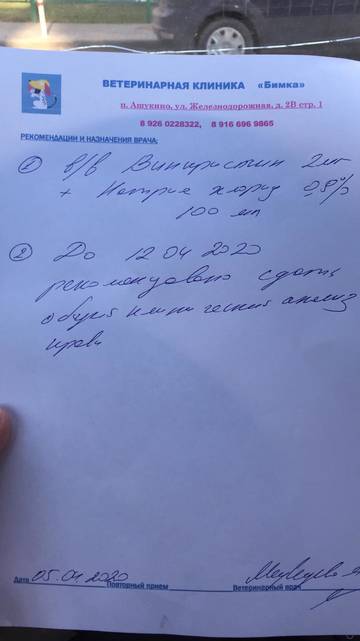 ВЕТЕРИНАРНАЯ КЛИНИКА «Бимка»
п. Ашукино, ул. Железнодорожная, д. 2В стр. 1
8 926 0228322, 8 916 696 9865
РЕКОМЕНДАЦИИ И НАЗНАЧЕНИЯ ВРАЧА:
1 в/в Винкристин 2мг
+ Натрие хлорид 0,9%
100 мл
2 До 12 04 2020
рекомендовано сдать
общий клинический анализ
крови
Дата 05.04 2020 Повторный прием Ветеринарный врач